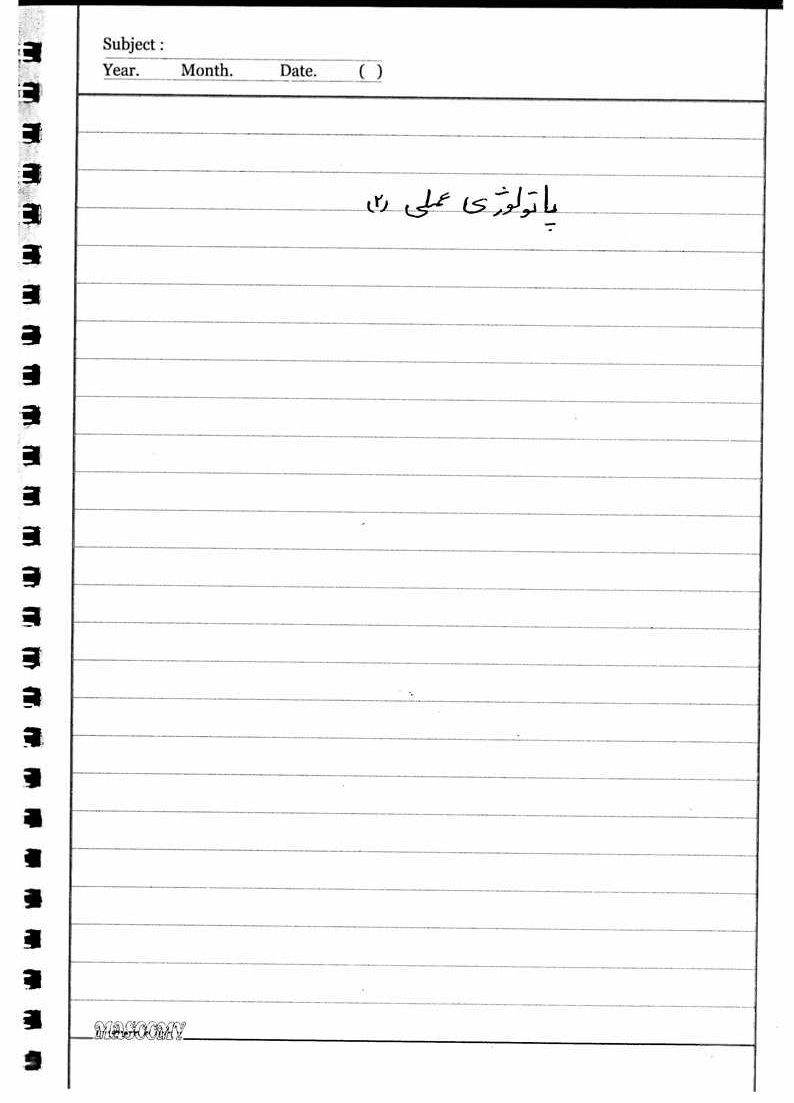 Subject :
Year. Month. Date. ( )
پاتولوژی عملی (۲)
MASOOMY